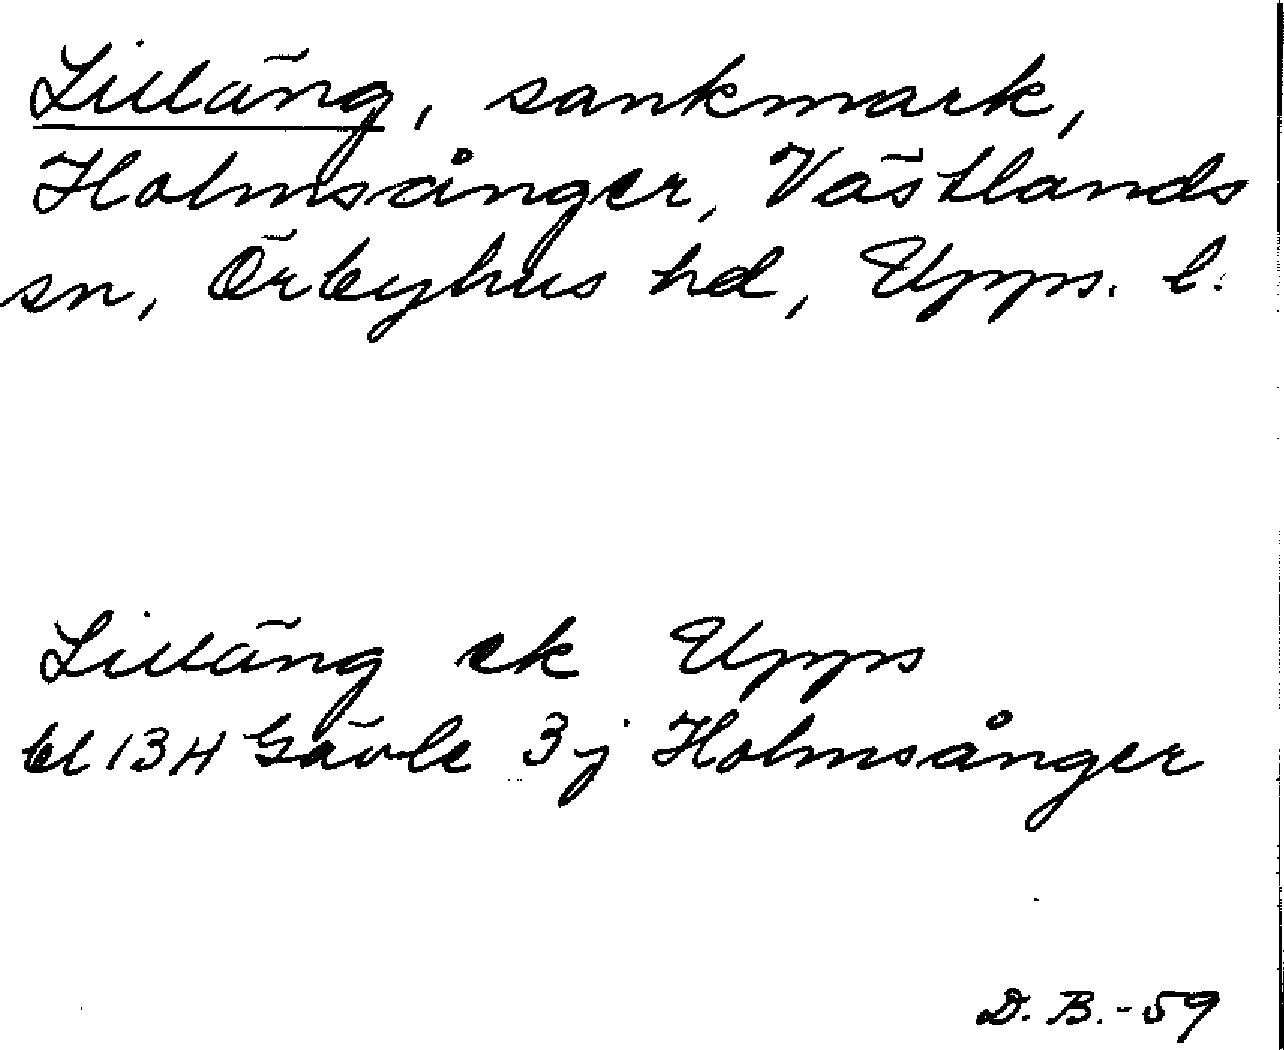 Lilläng, sankmark,
Holmsånger, Västlands
sn, Örbyhus hd, Upps. l.
Lilläng ek Upps
bl 13H Gävle 3j Holmsånger
D. B. - 59